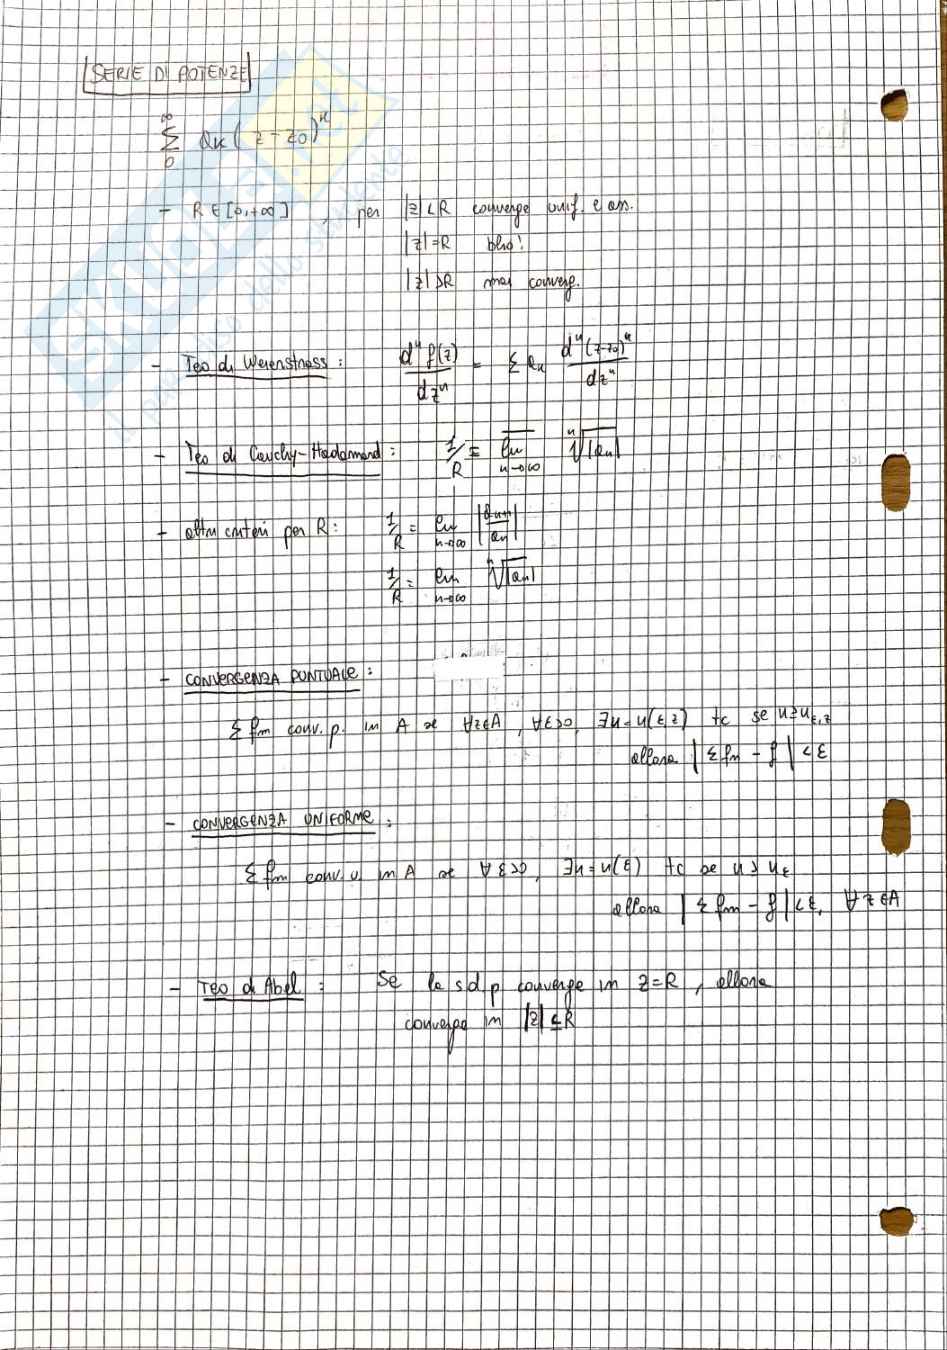 SERIE DI POTENZE
∞
∑ ak (z - z0)^k
0
- R ∈ [0,+∞] , per |z| < R converge unif. e ass.
|z| = R boh!
|z| > R non converge.
- Teo di Weierstrass : d^n f(z) / dz^n = Σ an d^n (z-z0)^n / dz^n
- Teo di Cauchy-Hadamard : 1/R = lim n→∞ n√|an|
- altri criteri per R : 1/R = lim n→∞ |an+1 / an|
1/R = lim n→∞ n√|an|
- CONVERGENZA PUNTUALE :
Σ fn conv. p. in A se ∀z∈A , ∀ε>0, ∃n = n(ε,z) tc se n ≥ nε,z
allora | Σ fn - f | < ε
- CONVERGENZA UNIFORME :
Σ fn conv. u. in A se ∀ ε>0, ∃n = n(ε) tc se n > nε
allora | Σ fn - f | < ε, ∀ z ∈ A
- Teo di Abel : Se la s.d.p converge in z=R , allora
converge in |z| ≤ R
SKUOLA.net
il paradiso dello studente